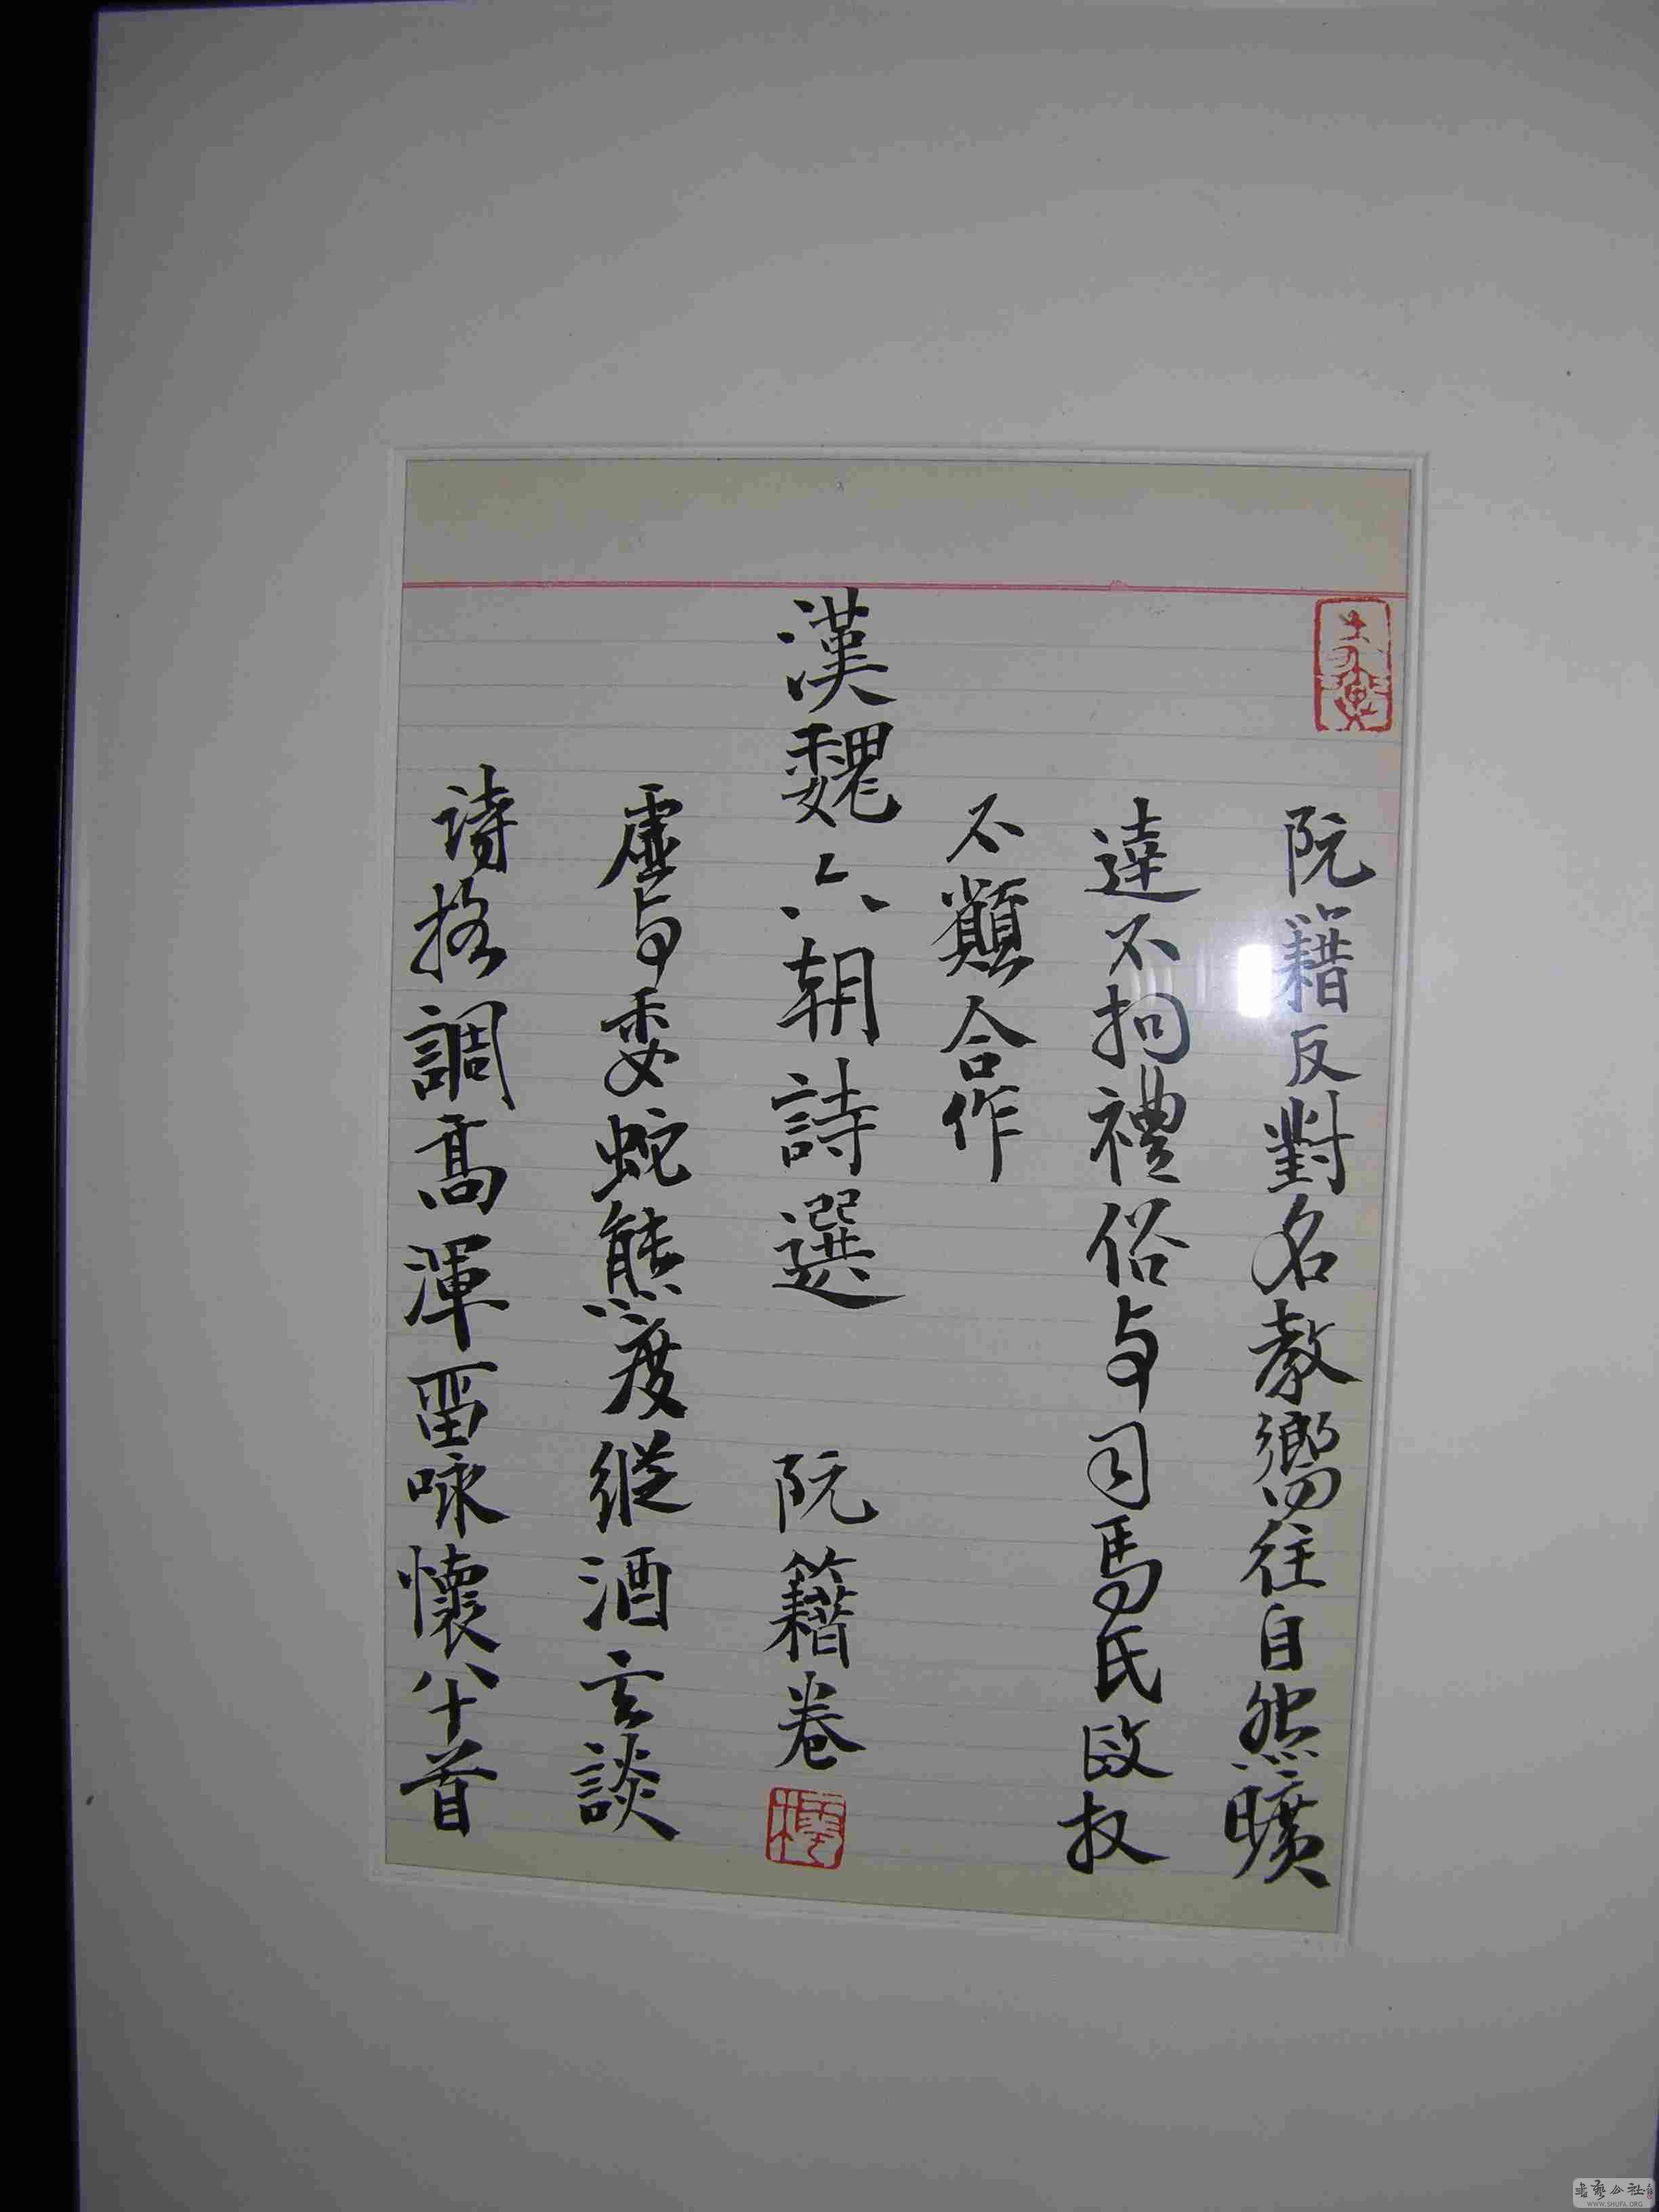 阮籍反對名教嚮往自然曠
達不拘禮俗与司馬氏政权
不願合作
漢魏六朝詩選 阮籍卷
虛与委蛇態度縱酒玄談
詩格調高渾留咏懷八十首
書藝公社
WWW.SHUFA.ORG